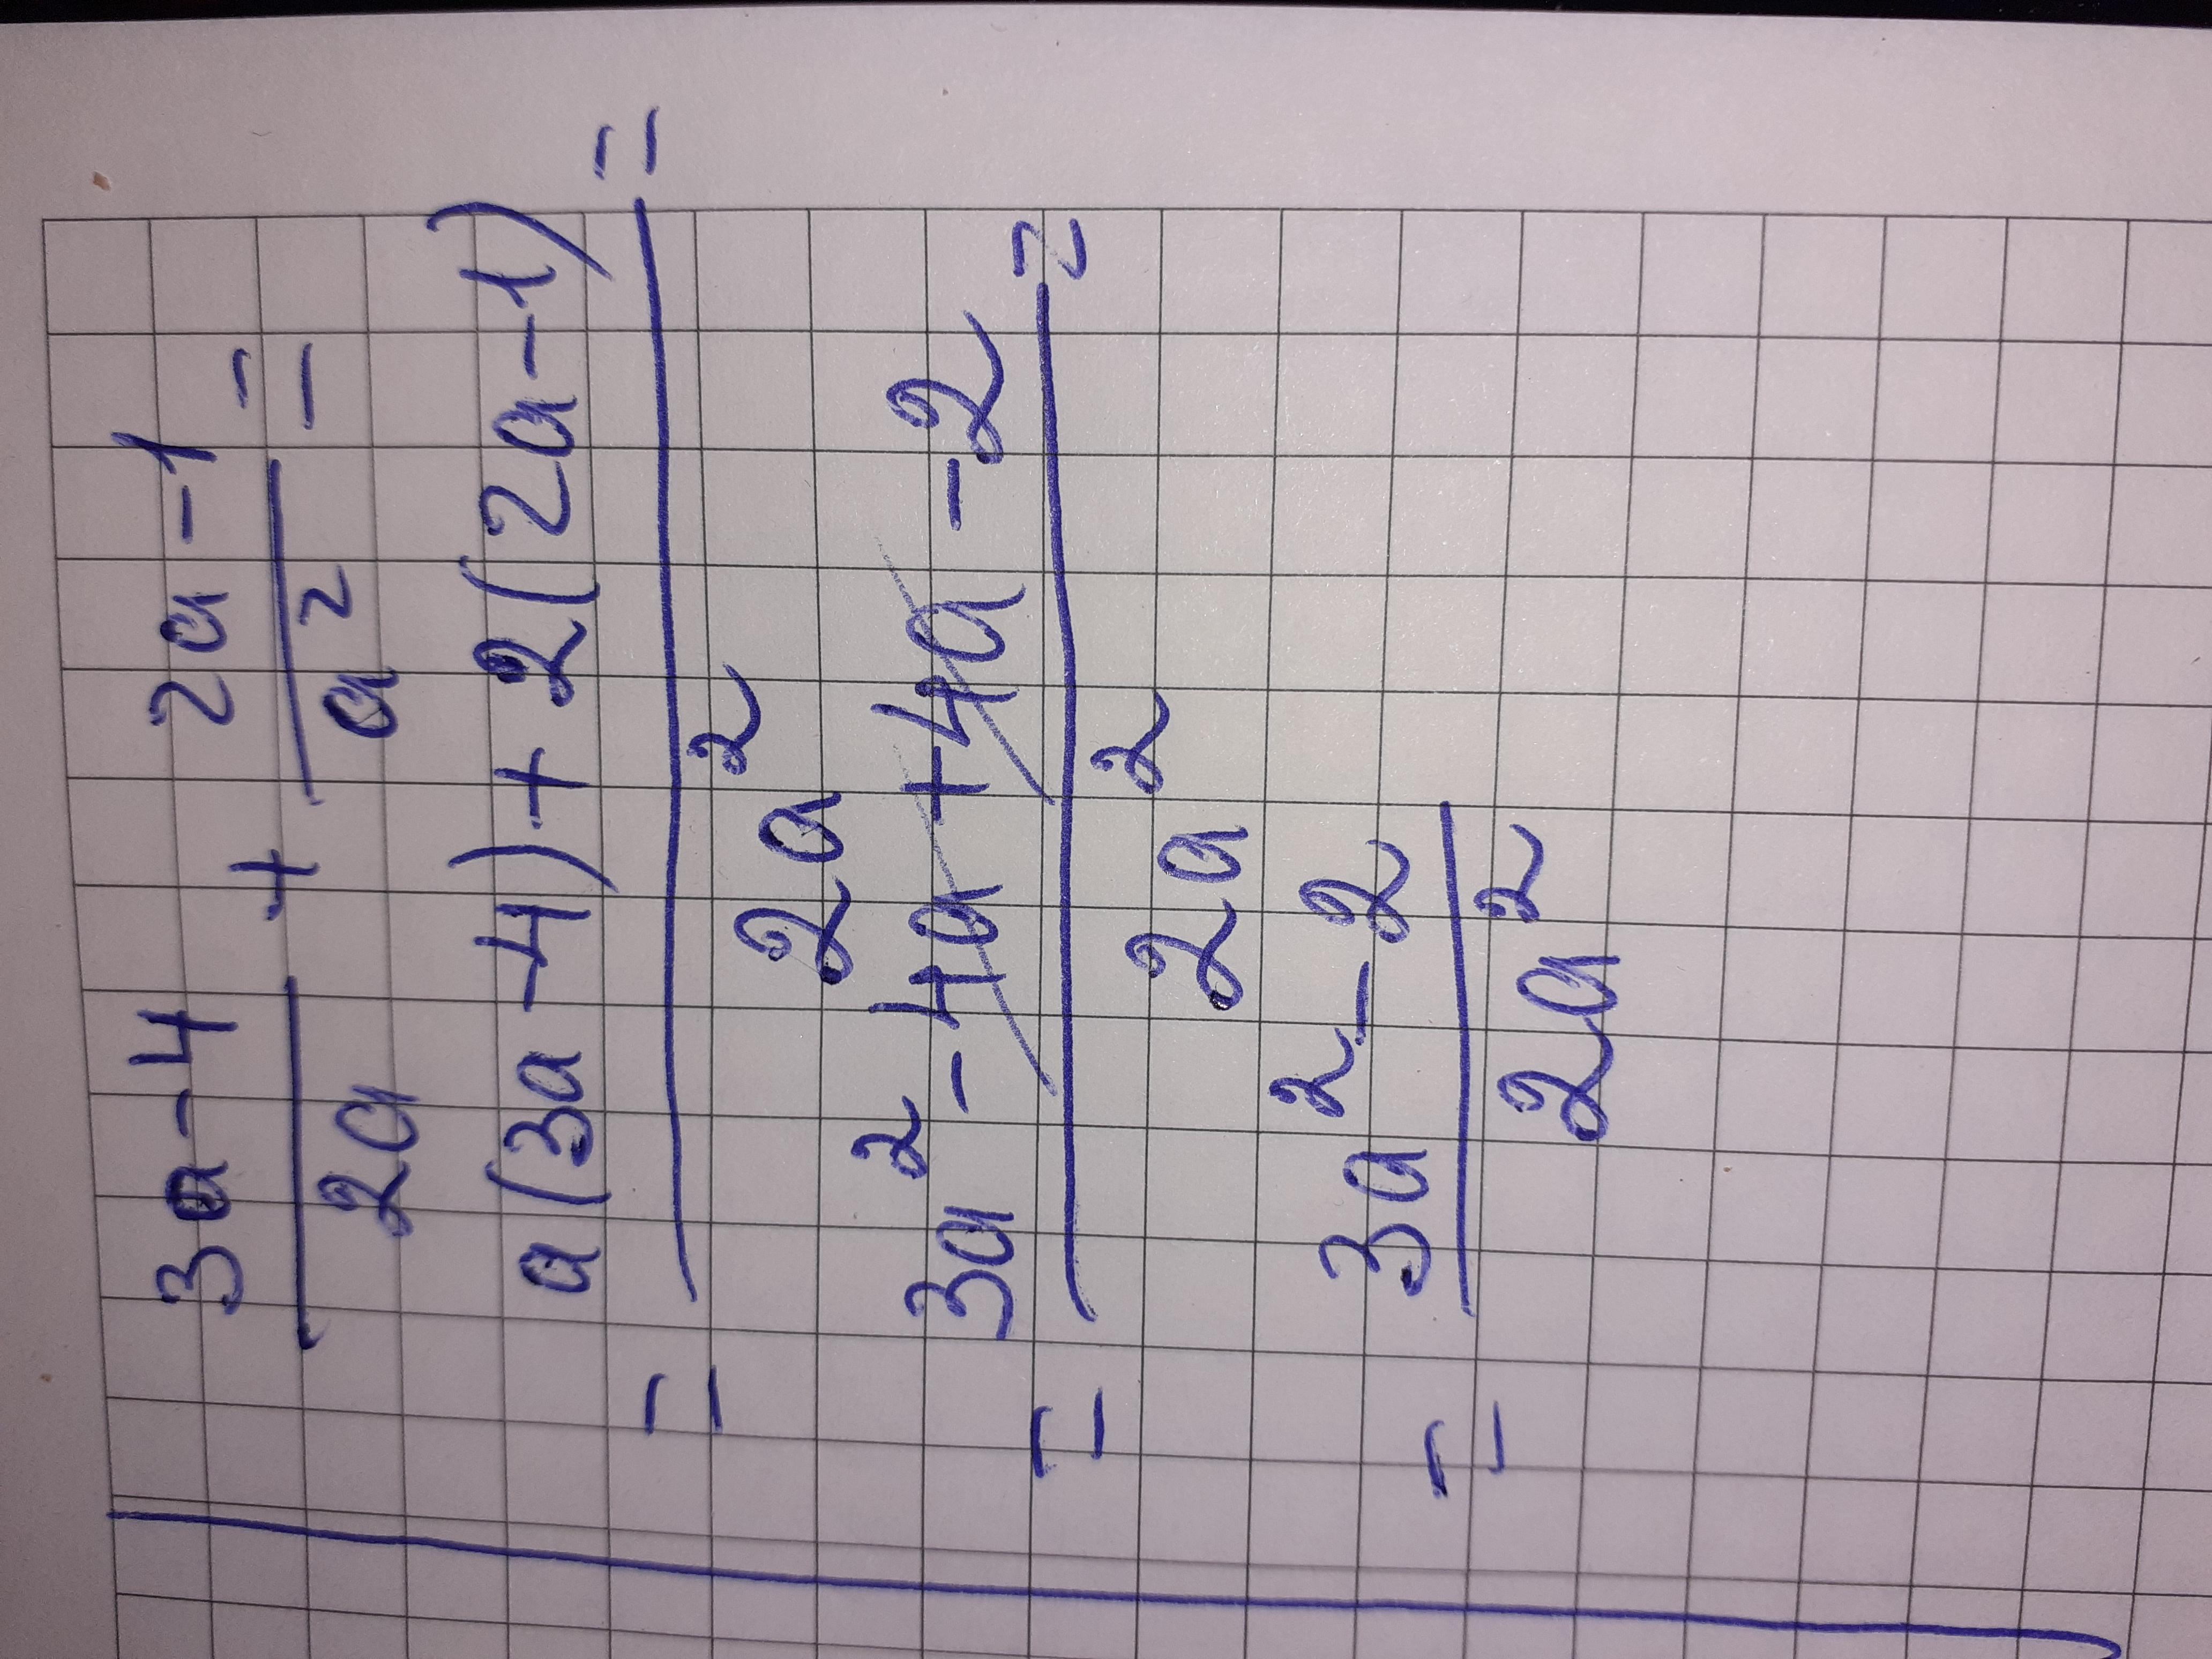 (3a-4)/(2a) + (2a-1)/(a²) =
= (a(3a-4)+2(2a-1))/(2a²) =
= (3a²-4a+4a-2)/(2a²) =
= (3a²-2)/(2a²)